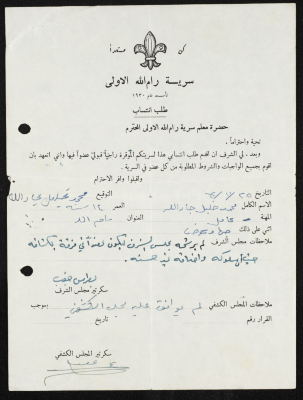 كن مستعداً
سرية رام الله الاولى
تأسست عام ١٩٣٠
طلب انتساب
حضرة معلم سرية رام الله الاولى المحترم
تحية واحتراماً،
وبعد، لي الشرف ان اقدم طلب انتسابي هذا لسريتكم الموقرة راجياً قبولي عضواً فيها واني اتعهد بأن
اقوم بجميع الواجبات والشروط المطلوبة من كل عضو في السرية.
واقبلوا وافر الاحترام
التاريخ التوقيع محمد خليل جارالله
الاسم الكامل محمد خليل جارالله العمر ١٢ سنة
المهنة العنوان رام الله
اثني على ذلك
ملاحظات مجلس الشرف لم يرشحه مجلس الشرف ليكون عضواً في فرقة الكشافة
حيث أن سلوكه وأخلاقه ليست حسنة.
سكرتير مجلس الشرف
ملاحظات المجلس الكشفي لم يوافق عليه مجلس الكشفي بموجب
القرار رقم تاريخ
سكرتير المجلس الكشفي